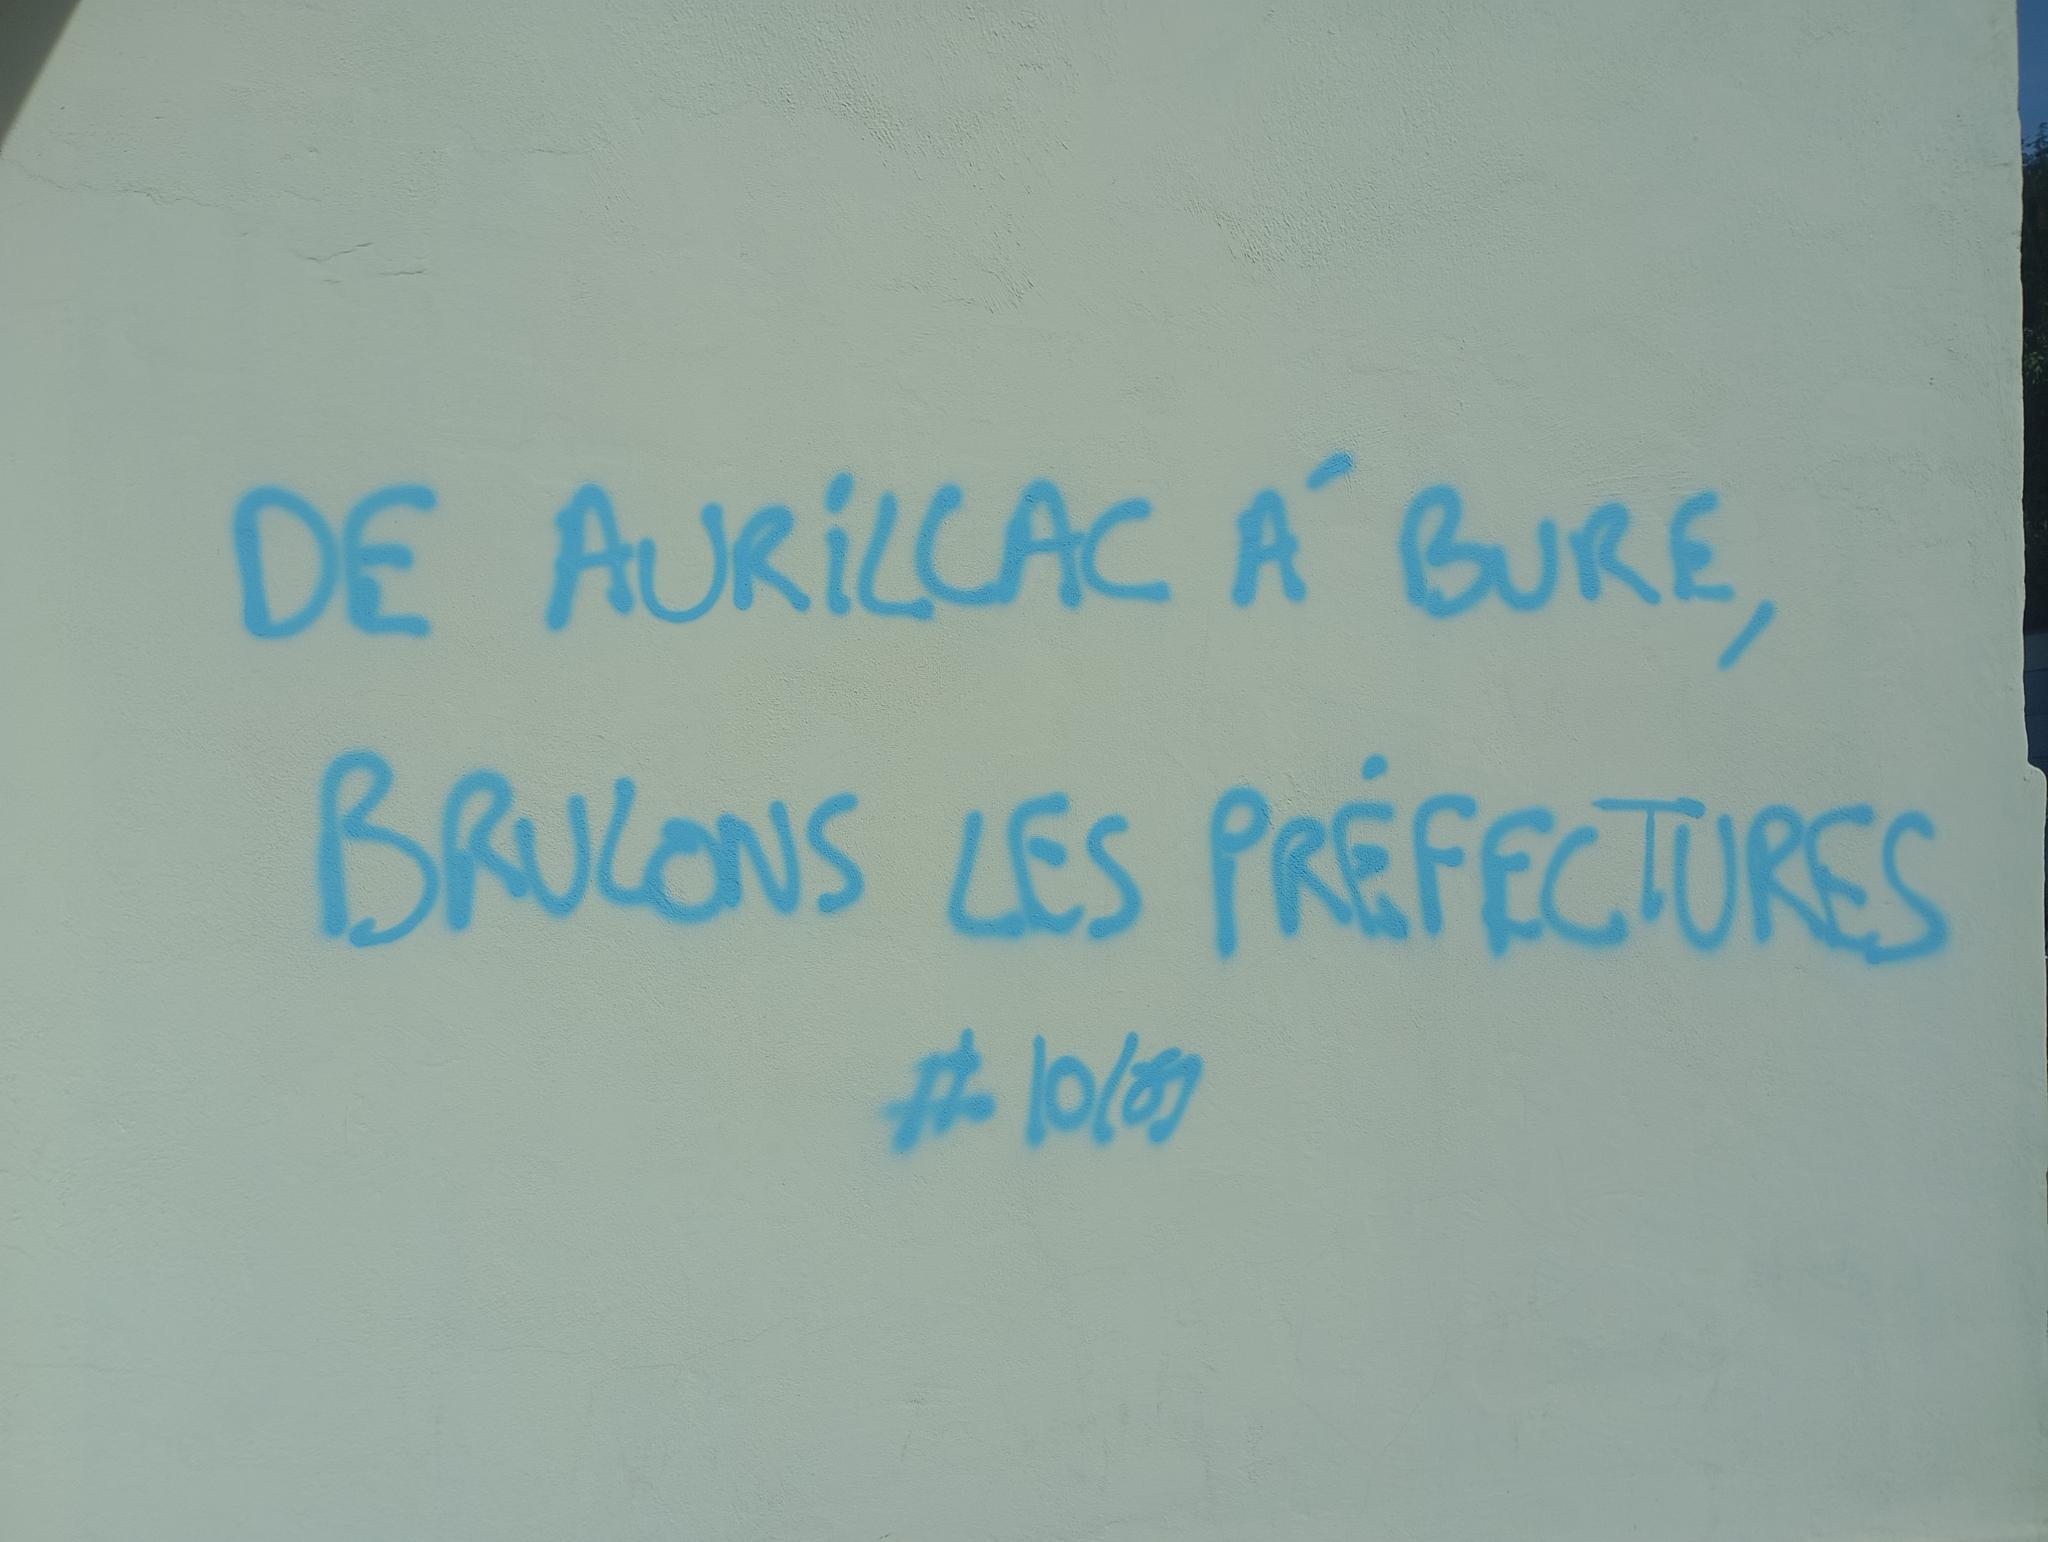 DE AURILLAC À BURE,
BRULONS LES PRÉFECTURES
# 10/09